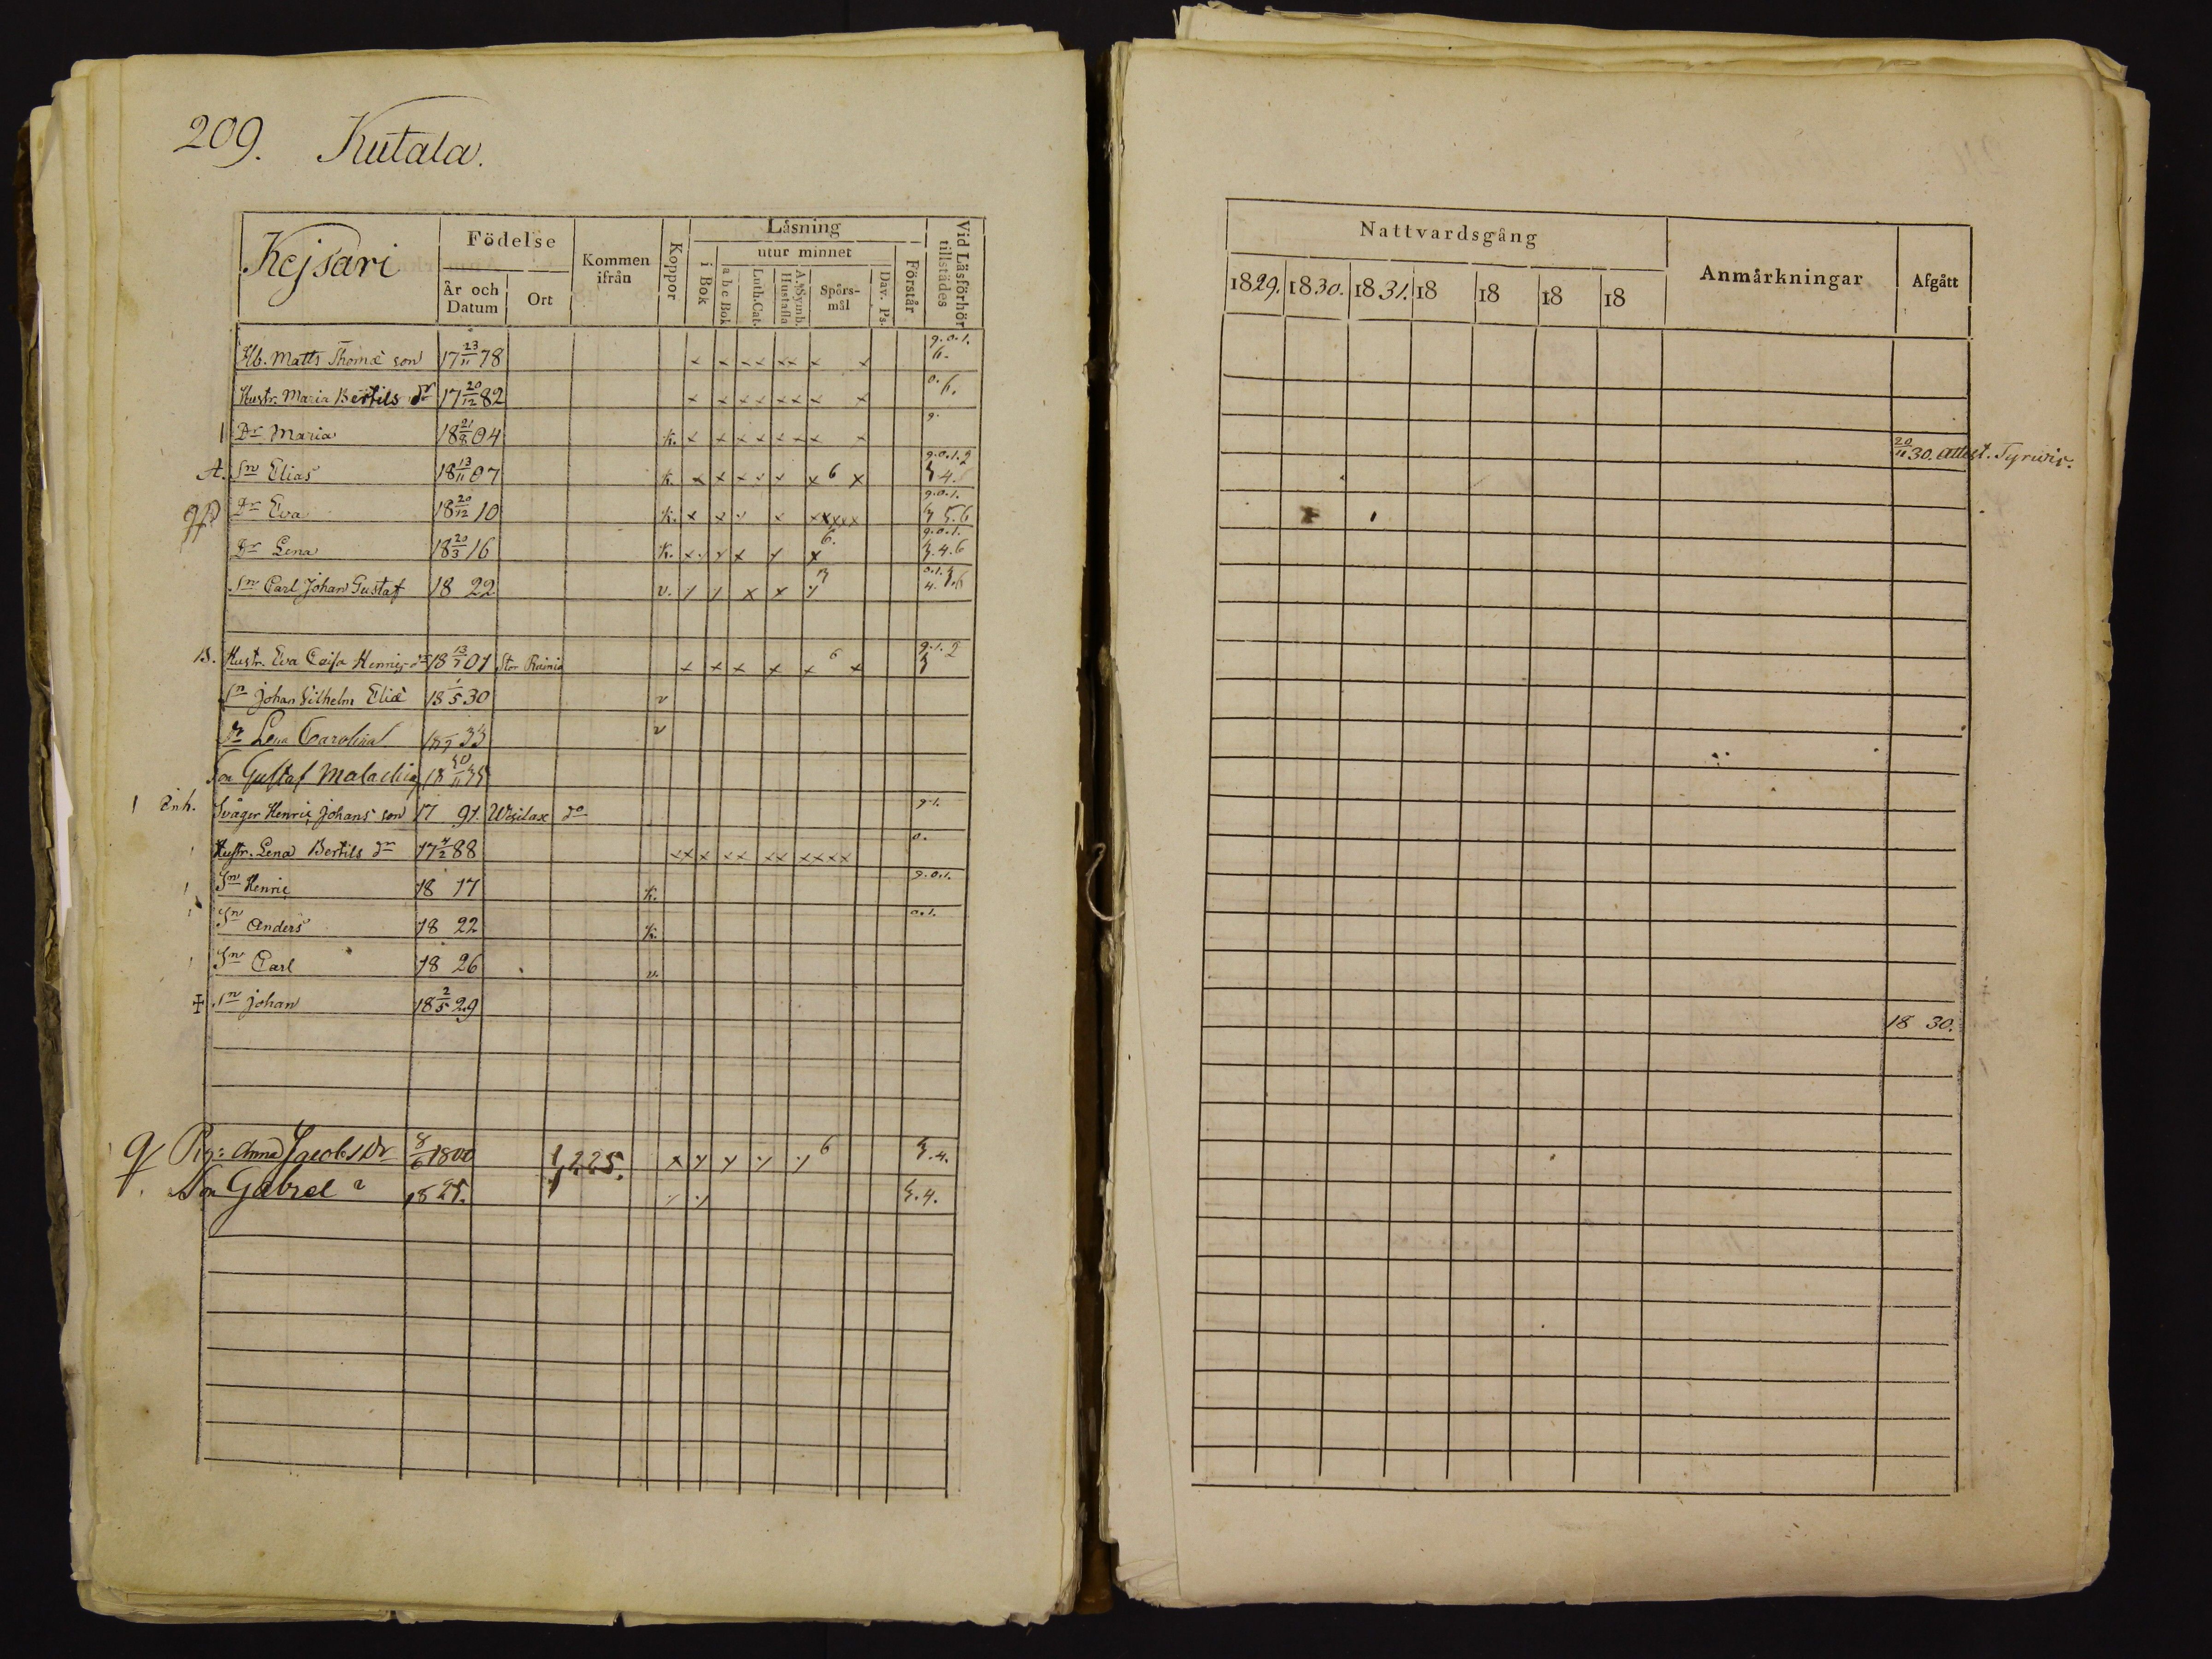 209. Kutala.
Kejsari
Födelse
År och Datum
Ort
Kommen ifrån
Koppor
Läsning
i Bok
utur minnet
a b c Bok
Luth. Cat.
A. Symb. Hustafla
Spörs-mål
Dav. Ps.
Förstår
Vid Läsförhör tillstädes
Hb. Matts Thomæ son 17 23/11 78 x x x x x x x x g.o.1. 6.
Hustr. Maria Bertils dr 17 20/12 82 x x x x x x x x o. 6.
Dr Maria 18 21/8 04 k. x x x x x x x x g.
A. Sn Elias 18 13/11 07 k. x x x x x x 6 x g.o.1.2 3 4.
Dr Eva 18 20/12 10 k. g.o.1. 3 5.6
Dr Lena 18 20/3 16 k. 6. g.o.1. 3.4.6
Sn Carl Johan Gustaf 18 22 v. 3 o.1.3 4. 5.6
B. Hustr. Eva Caisa Henrics dr 18 13/7 01 Stor x x x x x 6 x g.1.2 3
Sn Johan Vilhelm Eliæ 18 1/5 30 v
Dr Lena Carolina 33 v
Son Gustaf Malachias 18 30/11 35
1 Inh. Svåger Henric Johans son 17 91. do g.1.
Hustr. Lena Bertils dr 17 4/2 88 x x x x x x x x x x x o.
Sn Henric 18 17 k. g.o.1.
Sn Anders 18 22 k. o.1.
Sn Carl 18 26 v.
+ Sn Johan 18 2/5 29
Pig: Anna Jacobs Dr 8/6 1800 225. 6 3.4.
Son Gabriel 1825. 3.4.
Nattvardsgång
1829. 1830. 1831. 18 18 18 18
Anmärkningar
Afgått
20/11 30. attest. Tyrvis.
18 30.